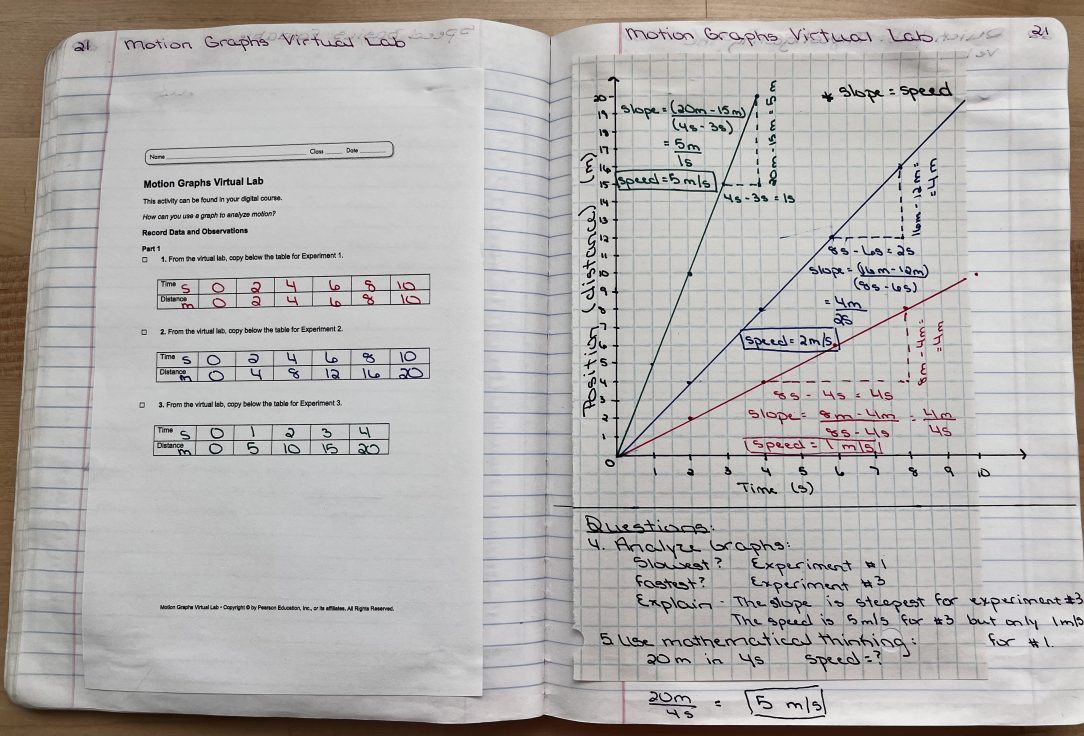 21 Motion Graphs Virtual Lab
Name Class Date
Motion Graphs Virtual Lab
This activity can be found in your digital course.
How can you use a graph to analyze motion?
Record Data and Observations
Part 1
1. From the virtual lab, copy below the table for Experiment 1.
Time s 0 2 4 6 8 10
Distance m 0 2 4 6 8 10
2. From the virtual lab, copy below the table for Experiment 2.
Time s 0 2 4 6 8 10
Distance m 0 4 8 12 16 20
3. From the virtual lab, copy below the table for Experiment 3.
Time s 0 1 2 3 4
Distance m 0 5 10 15 20
Motion Graphs Virtual Lab • Copyright © by Pearson Education, Inc., or its affiliates. All Rights Reserved.
Motion Graphs Virtual Lab 21
* slope = speed
slope = (20m - 15m)
(4s - 3s)
= 5m
1s
speed = 5 m/s
20m - 15m = 5m
4s - 3s = 1s
16m - 12m =
= 4m
8s - 6s = 2s
slope = (16m - 12m)
(8s - 6s)
= 4m
2s
speed = 2m/s
8m - 4m =
= 4m
8s - 4s = 4s
slope = 8m - 4m = 4m
8s - 4s 4s
speed = 1 m/s
Position (distance) (m)
20
19
18
17
16
15
14
13
12
11
10
9
8
7
6
5
4
3
2
1
0
1 2 3 4 5 6 7 8 9 10
Time (s)
Questions:
4. Analyze Graphs:
Slowest? Experiment #1
Fastest? Experiment #3
Explain - The slope is steepest for experiment #3
The speed is 5m/s for #3 but only 1m/s
for #1.
5 Use mathematical thinking:
20m in 4s speed = ?
20m
4s = 5 m/s